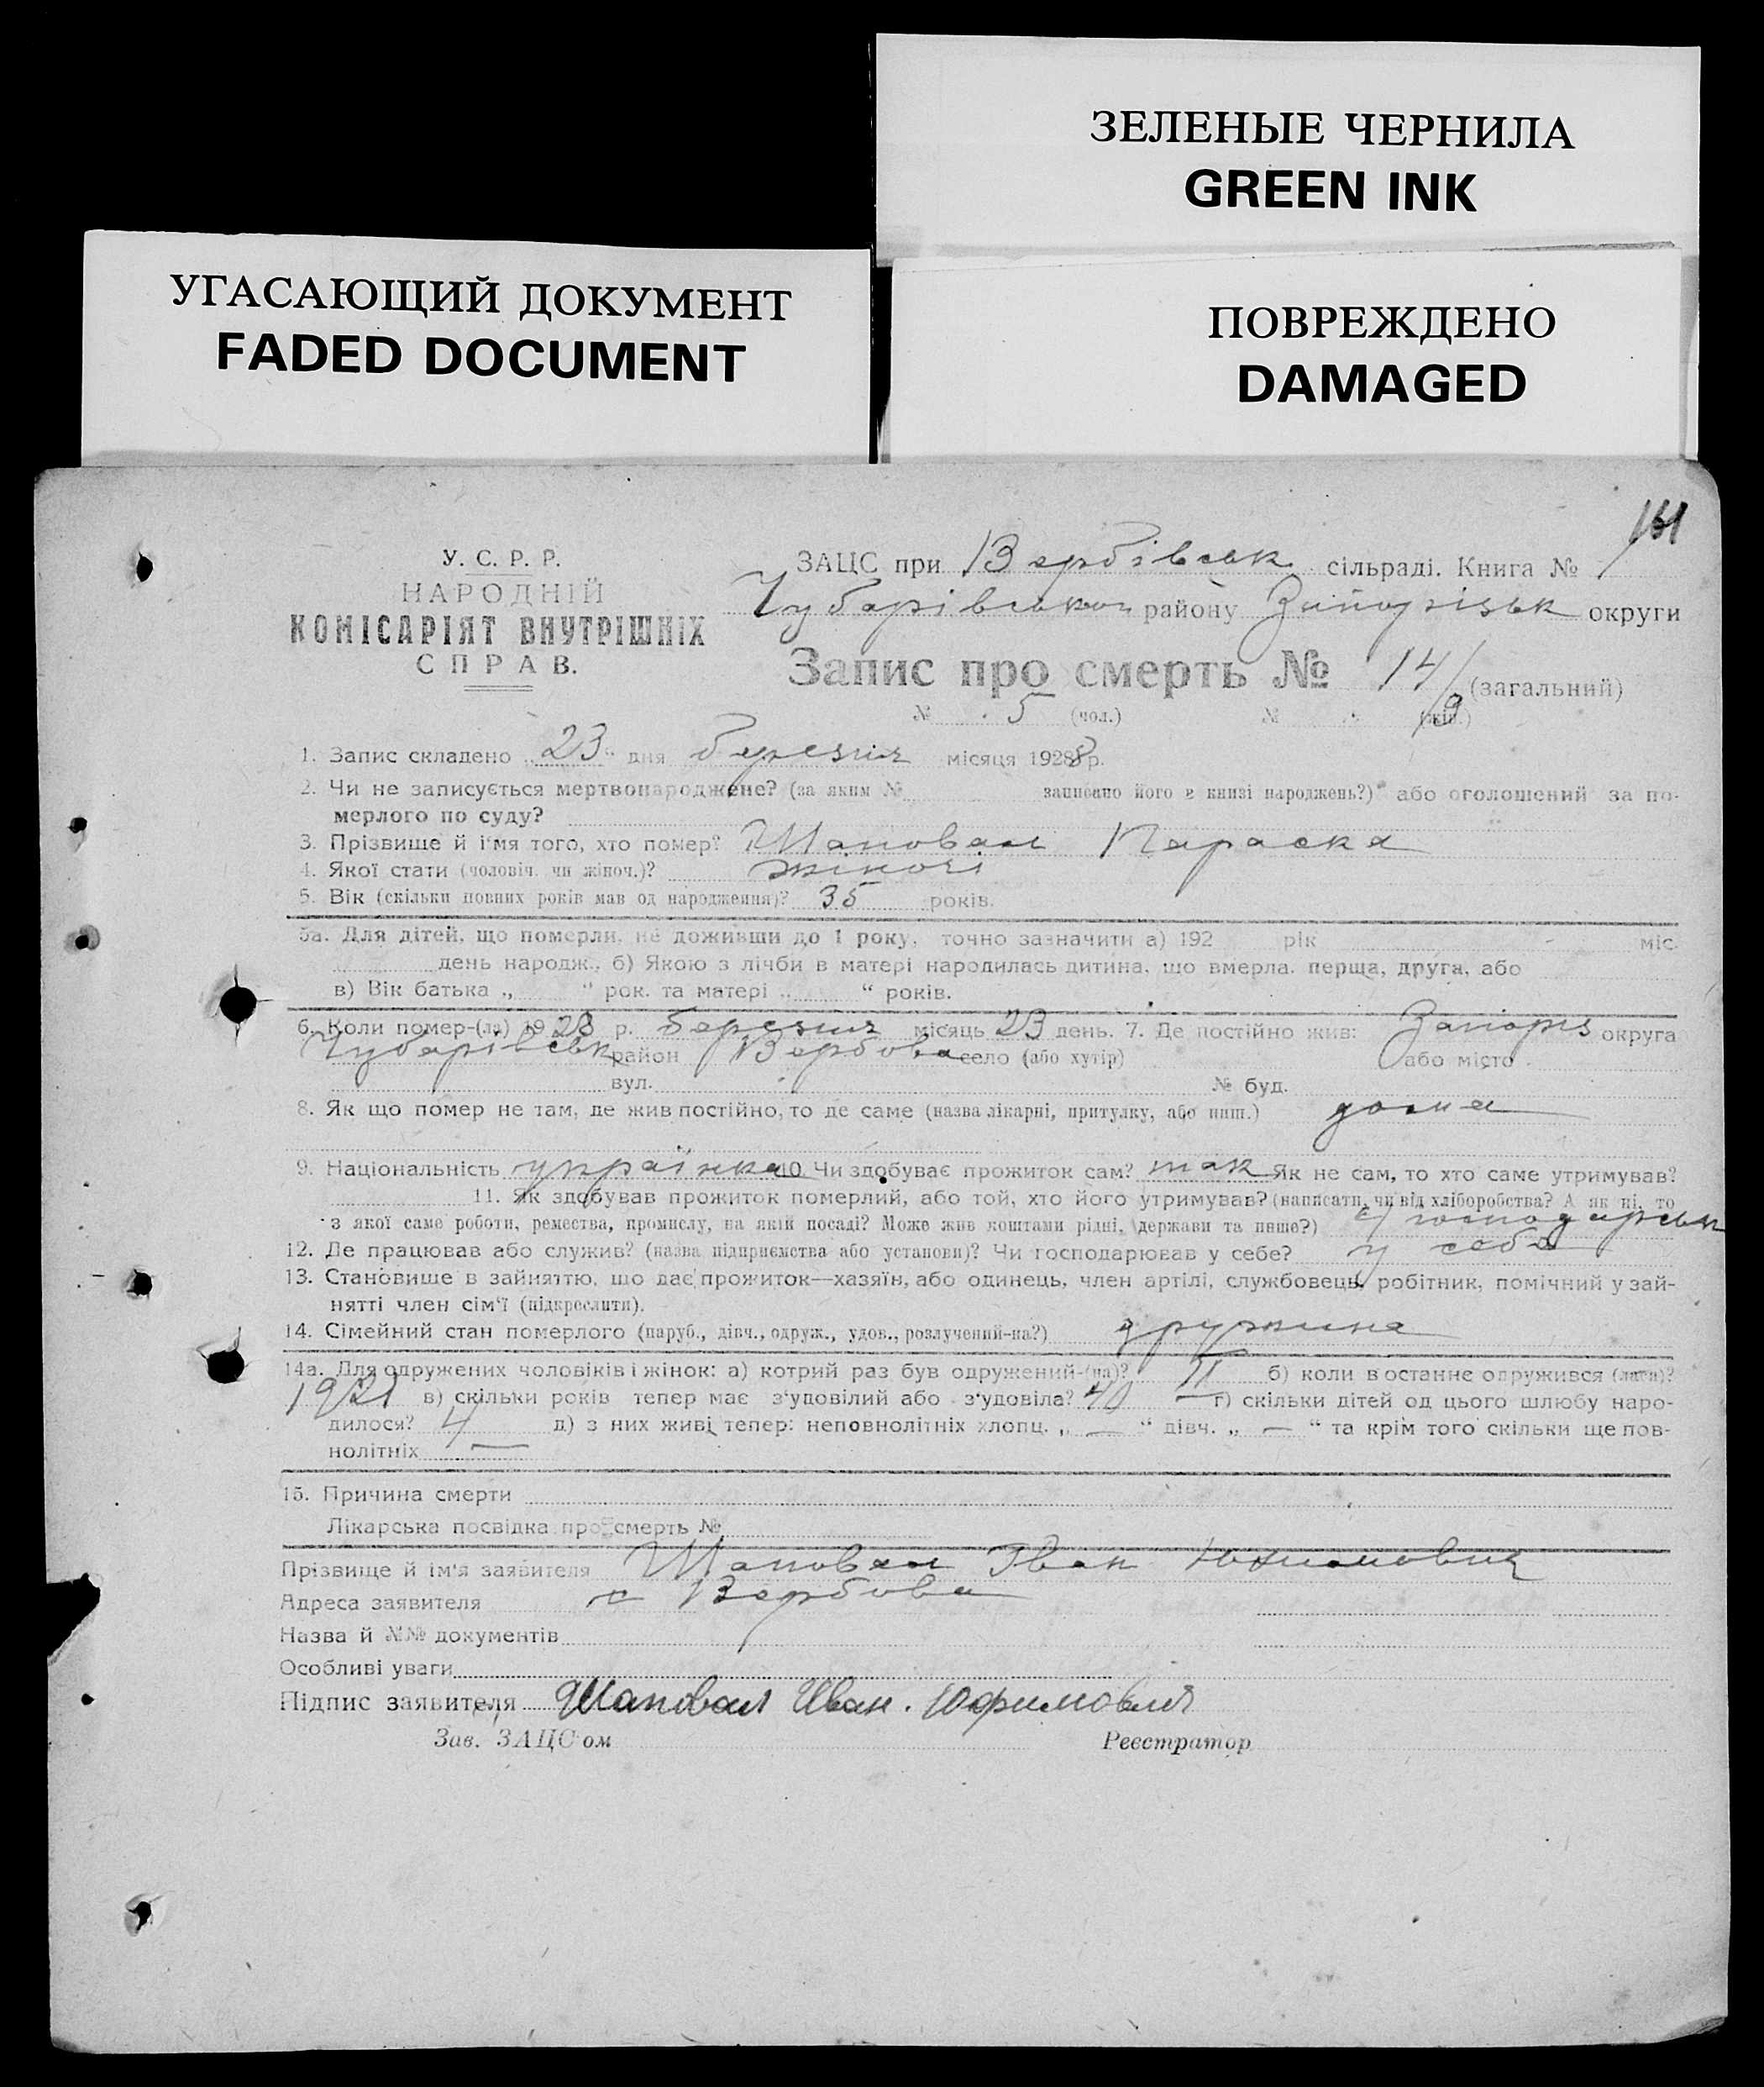 ЗЕЛЕНЫЕ ЧЕРНИЛА
GREEN INK
УГАСАЮЩИЙ ДОКУМЕНТ
FADED DOCUMENT
ПОВРЕЖДЕНО
DAMAGED
У. С. Р. Р.
НАРОДНІЙ
КОМІСАРІЯТ ВНУТРІШНІХ
СПРАВ.
ЗАЦС при Вербівськ сільраді. Книга №
Чубарівськой району Запоріськ округи
Запис про смерть № 14/ (загальний)
№ 5 (чол.) № 9 (жін.)
1. Запис складено „23“ дня березня місяця 1928 р.
2. Чи не записується мертвонароджене? (за яким № записано його в книзі народжень?) або оголошений за по-
мерлого по суду?
3. Прізвище й ім'я того, хто помер? Шаповал Параска
4. Якої стати (чоловіч. чи жіноч.)? жіночі
5. Вік (скільки повних років мав од народження)? 35 років.
5а. Для дітей, що померли, не доживши до 1 року, точно зазначити а) 192 рік міс.
день народж., б) Якою з лічби в матері народилась дитина, що вмерла, перша, друга, або
в) Вік батька „ “ рок. та матері „ “ років.
6. Коли помер-(ла) 1928 р. березня місяць 23 день. 7. Де постійно жив: Запоріз округа
Чубарівськ район Вербова село (або хутір) або місто
вул. № буд.
8. Як що помер не там, де жив постійно, то де саме (назва лікарні, притулку, або инш.) дома
9. Національність українка 10. Чи здобуває прожиток сам? так Як не сам, то хто саме утримував?
11. Як здобував прожиток померлий, або той, хто його утримував? (написати, чи від хліборобства? А як ні, то
з якої саме роботи, ремества, промислу, на якій посаді? Може жив коштами рідні, держави та инше?) с/господарськ
12. Де працював або служив? (назва підприємства або установи)? Чи господарював у себе? у себе
13. Становище в зайняттю, що дає прожиток—хазяїн, або одинець, член артілі, службовець, робітник, помічний у зай-
нятті член сім'ї (підкреслити).
14. Сімейний стан померлого (паруб., дівч., одруж., удов., розлучений-на?) дружина
14а. Для одружених чоловіків і жінок: а) котрий раз був одружений-(на)? II б) коли востаннє одружився (лася)?
1921 в) скільки років тепер має з'удовілий або з'удовіла? 40 — г) скільки дітей од цього шлюбу наро-
дилося? 4 д) з них живі тепер: неповнолітніх хлопц. „ — “ дівч. „ — “ та крім того скільки ще пов-
нолітніх —
15. Причина смерти
Лікарська посвідка про смерть №
Прізвище й ім'я заявителя Шаповал Іван Юхимович
Адреса заявителя с Вербова
Назва й №№ документів
Особливі уваги
Підпис заявителя Шаповал Иван. Юфимович
Зав. ЗАЦС'ом Реєстратор